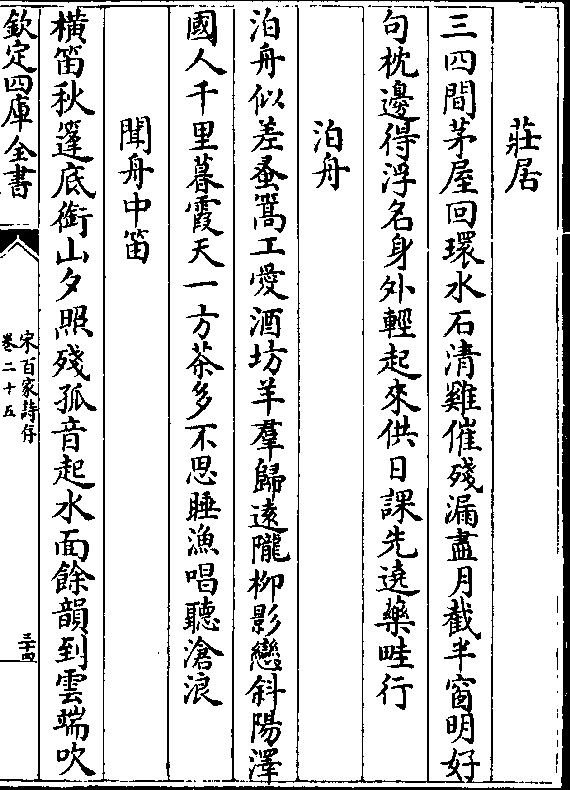 莊居
三四間茅屋回環水石清雞催殘漏盡月截半窗明好
句枕邊得浮名身外輕起來供日課先遶藥畦行
泊舟
泊舟似差蚤篙工愛酒坊羊羣歸遠隴柳影戀斜陽澤
國人千里暮霞天一方茶多不思睡漁唱聽滄浪
聞舟中笛
橫笛秋篷底銜山夕照殘孤音起水面餘韻到雲端吹
欽定四庫全書
宋百家詩存
卷二十五
三十四